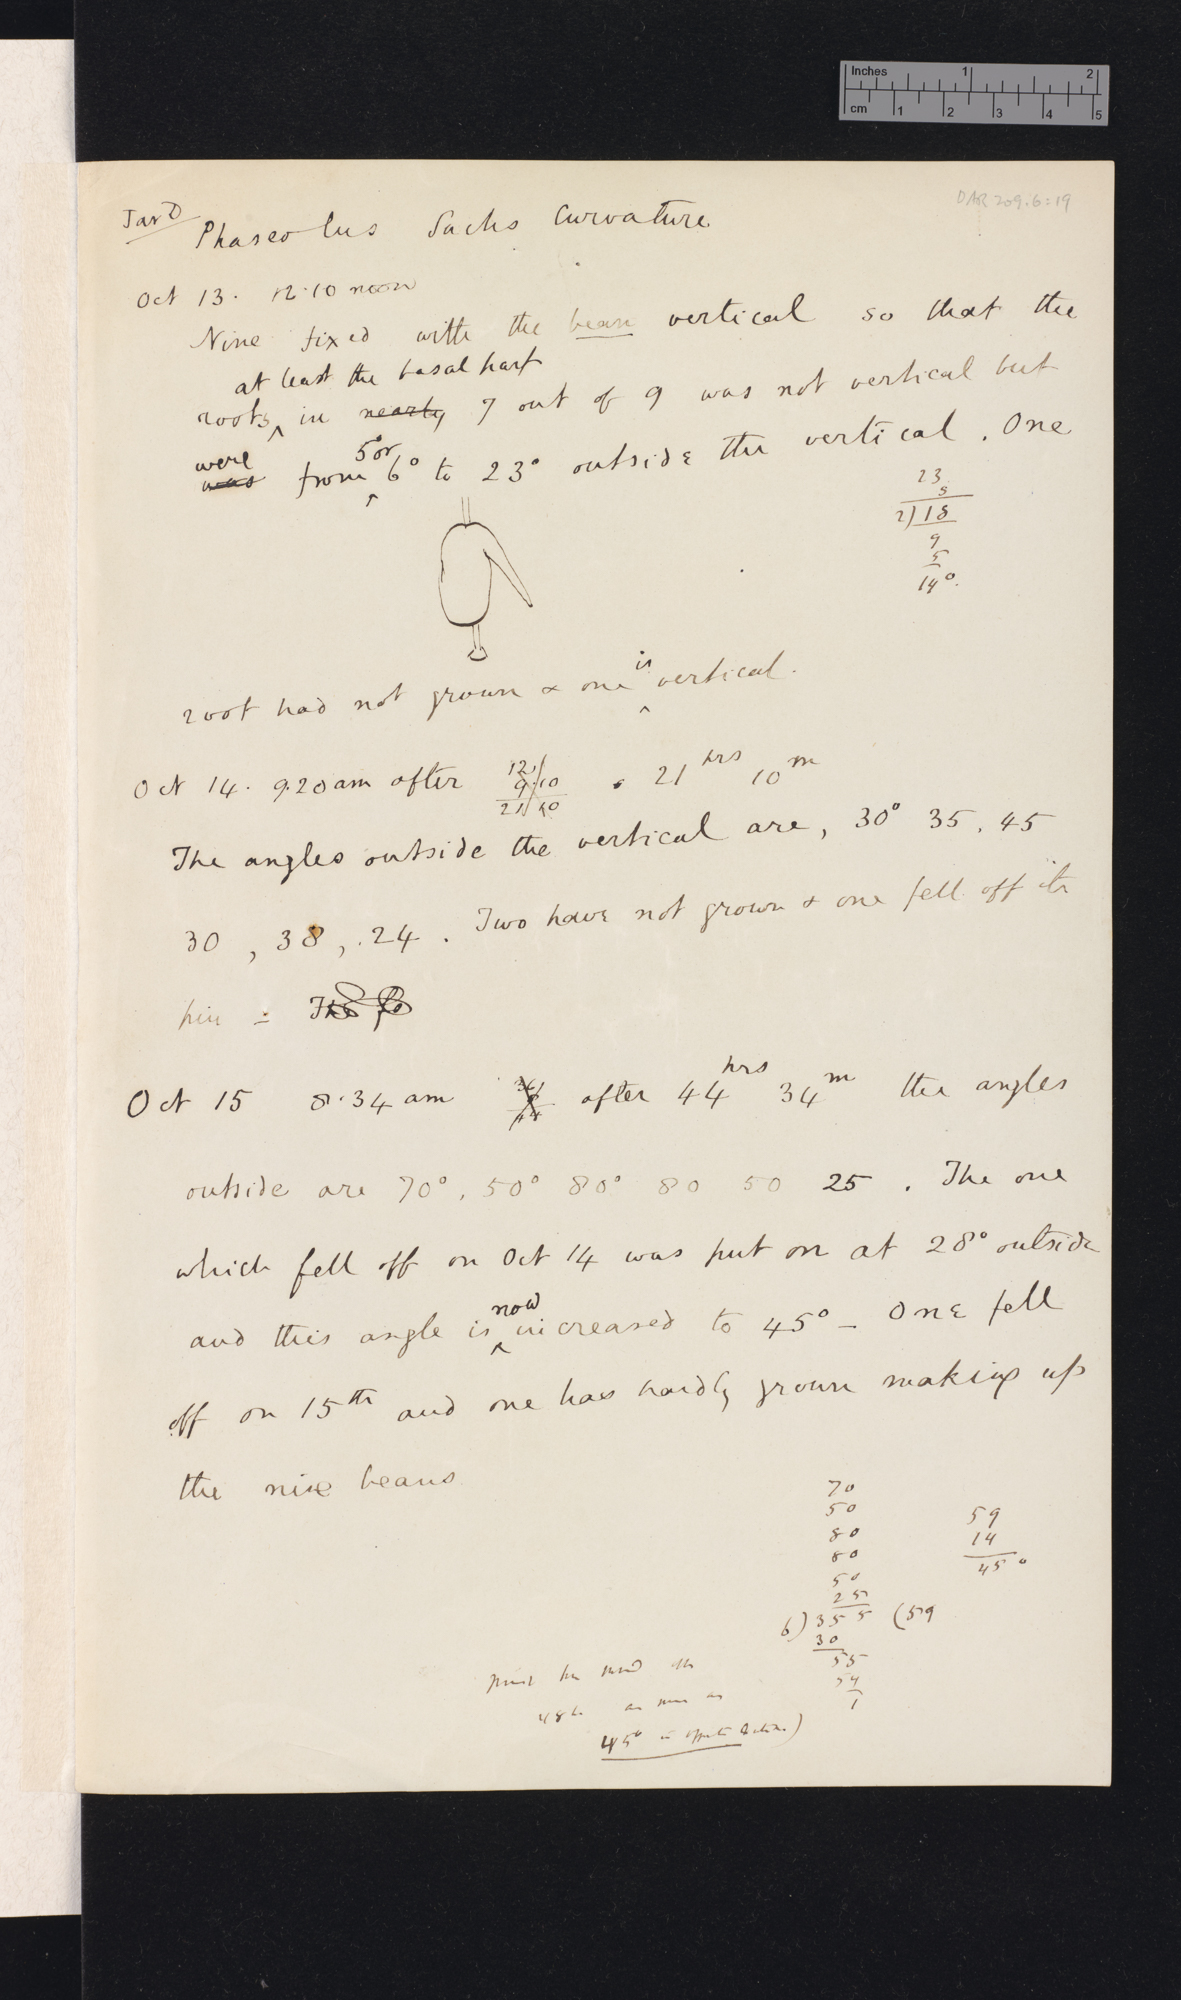 Inches 1 2
cm 1 2 3 4 5
DAR 209.6:19
Jar D
Phaseolus Sachs Curvature
Oct 13. 12.10 noon
Nine fixed with the bean vertical so that the
at least the basal part
roots ^ in nearly 7 out of 9 was not vertical but
were 5° or
was from ^ 6° to 23° outside the vertical. One
23
5
2)18
9
5
14°.
is
root had not grown & one ^ vertical.
Oct 14. 9.20 am after 12 / 9.10 = 21 hrs 10 m
The angles outside the vertical are, 30° 35, 45
30, 38, 24. Two have not grown & one fell off its
pin = The fo
Oct 15 8.34 am after 44 hrs 34 m the angles
outside are 70°, 50° 80° 80 50 25. The one
which fell off on Oct 14 was put on at 28° outside
now
and this angle is ^ increased to 45° – One fell
off on 15th and one has hardly grown making up
the nine beans
70
50
80
80
50
25
6)355(59
30
55
54
1
59
14
45°
45° in opposite direction)